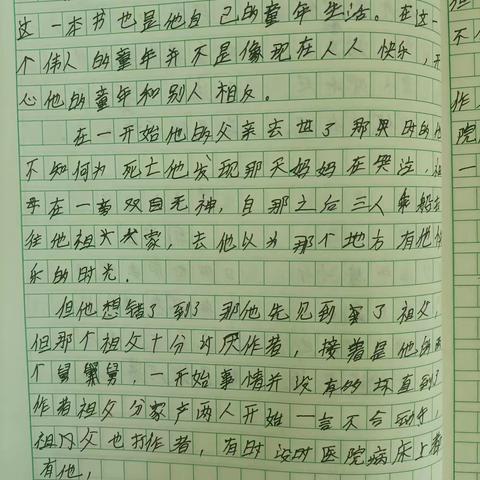 这一本书也是他自己的童年生活。在这一
个伟人的童年并不是像现在人人快乐,开
心他的童年和别人相反。
在一开始他的父亲去世了那果时的他
不知何为死亡他发现那天妈妈在哭泣,祖
母在一旁双目无神,自那之后三人乘船去
往他祖父家,去他以为那个地方有他快
乐的时光.
但他想错了到了那他先见到了祖父,
但那个祖父十分讨厌作者,接着是他的两
个舅舅,一开始事情并没有多坏直到了
作者祖父分家产两人开始一言不合动手,
祖父也打作者,有时没时医院病床上都
有他,
但
不
作
院
一